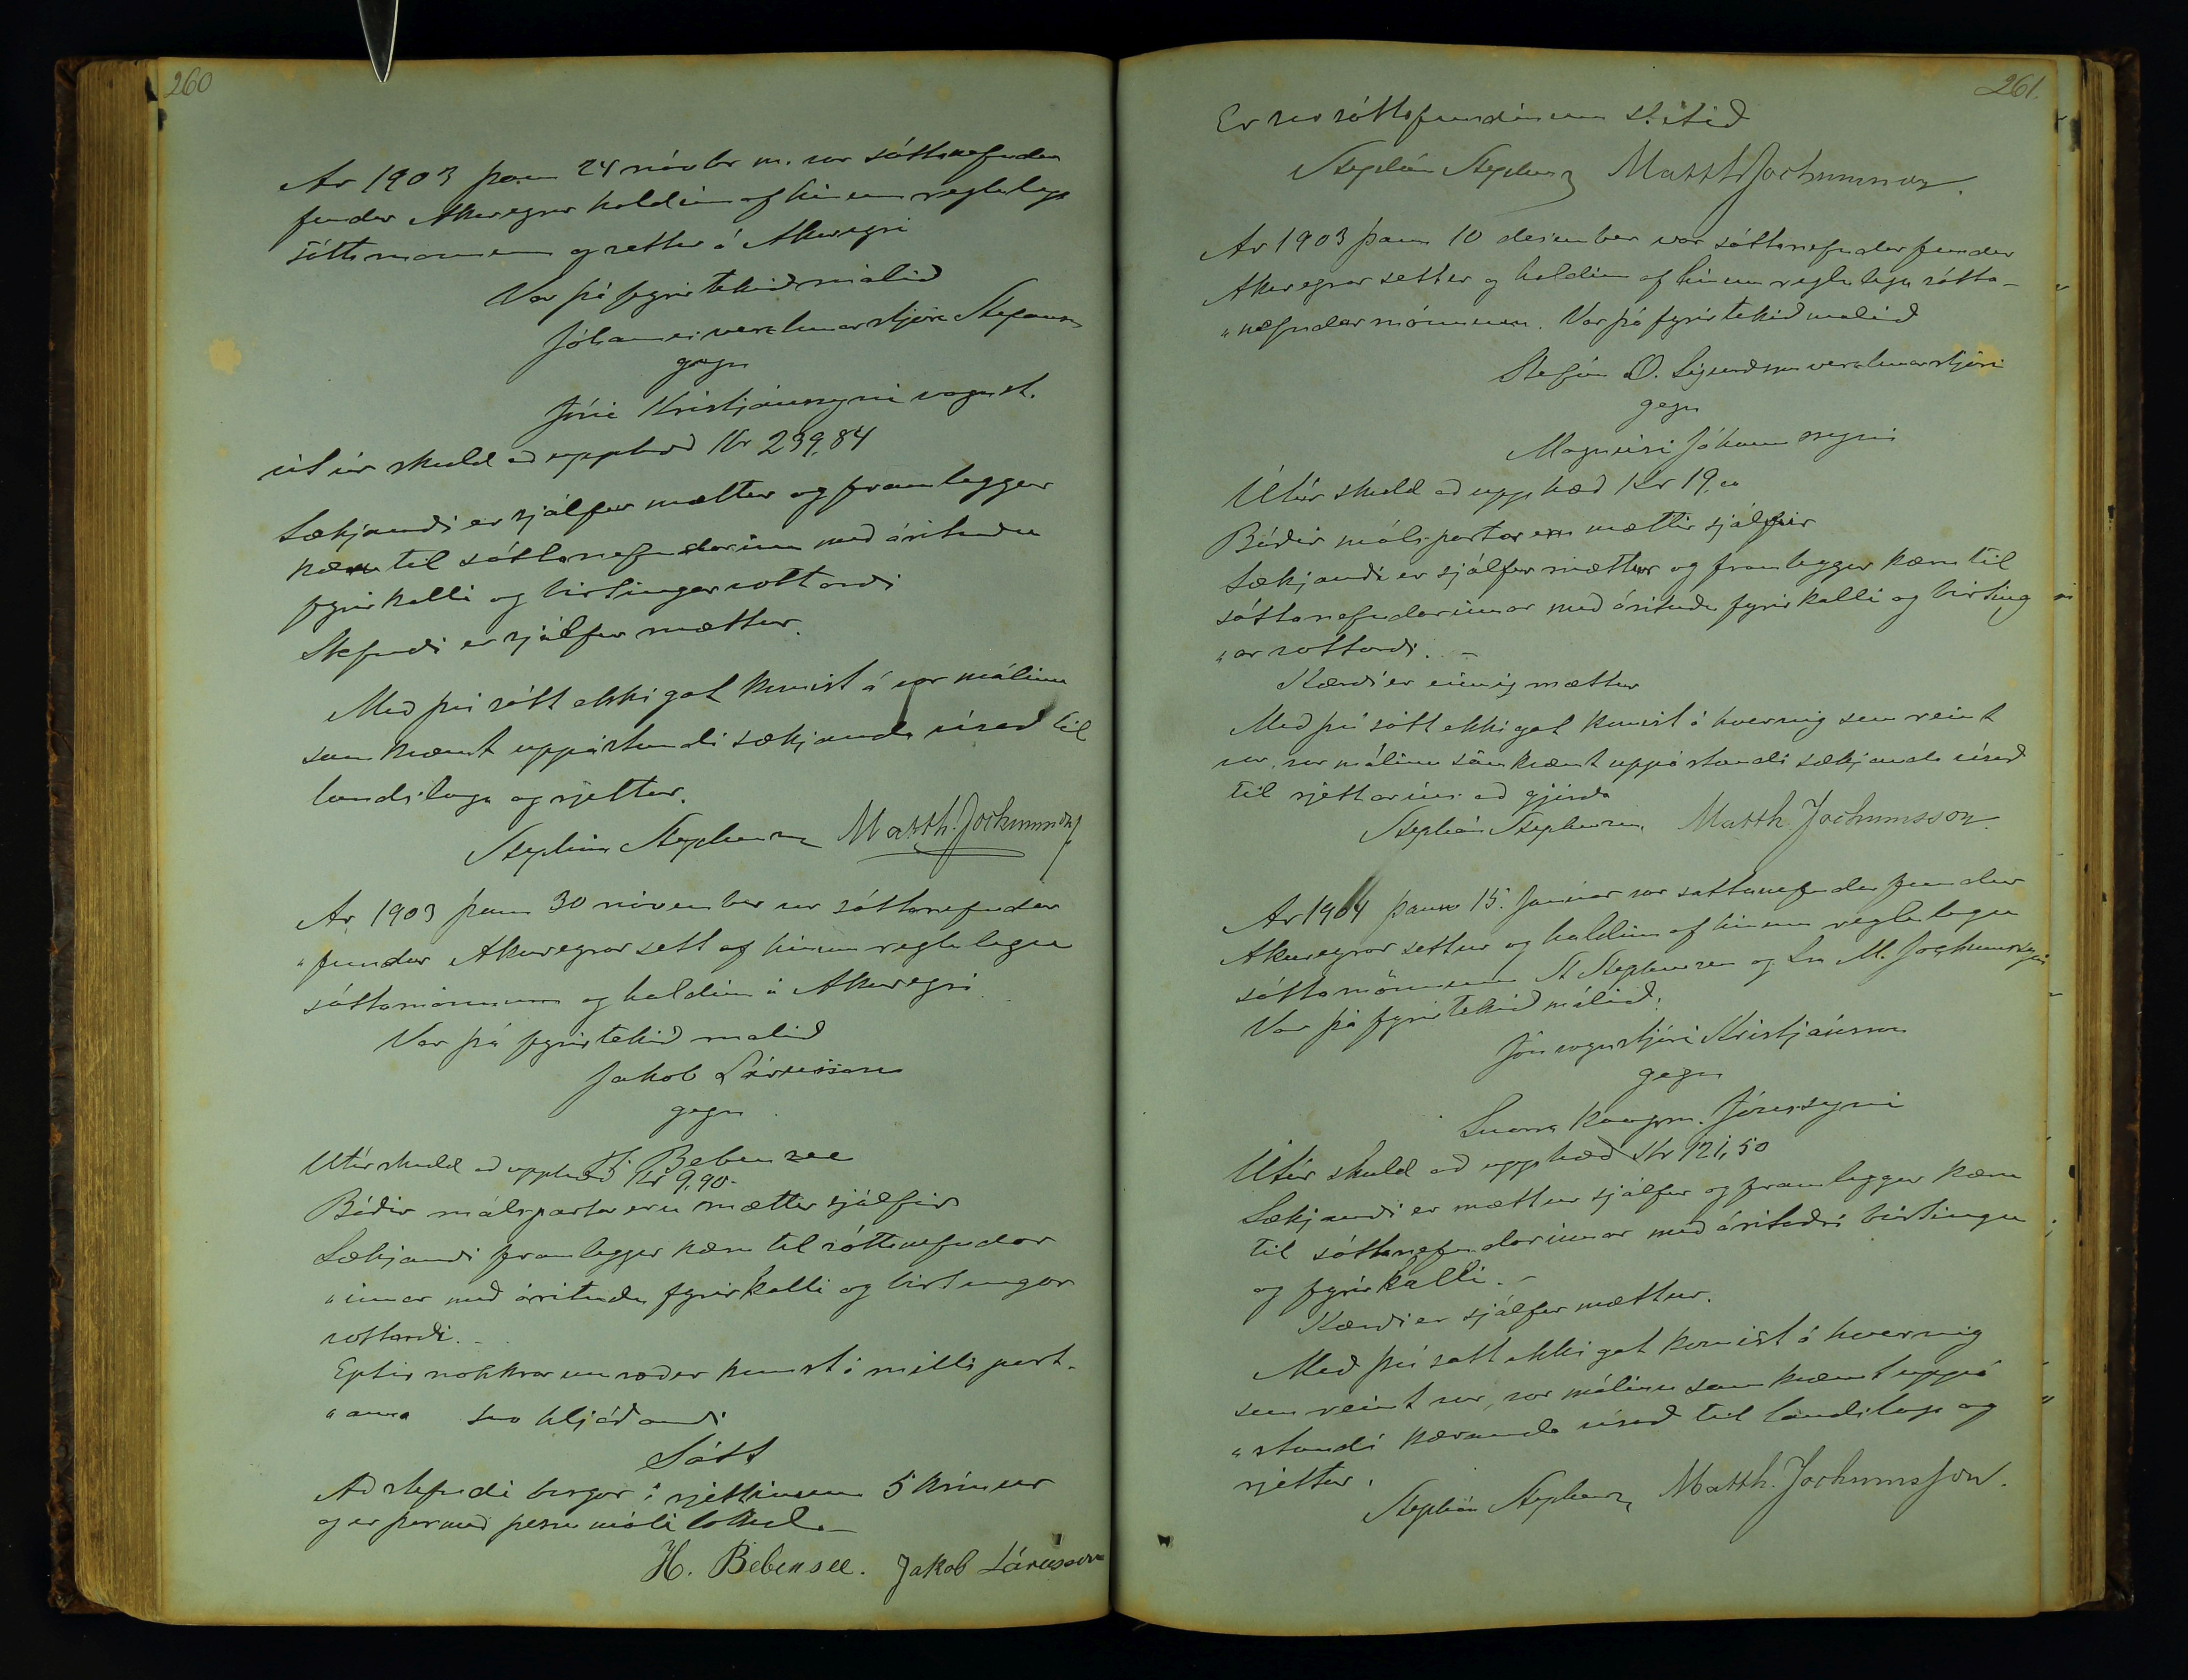 260
Ar 1903 þann 24 nóvbr m. var sáttanefndar
fundur Akureyrar haldinn af hinum reglulegu
sáttamönnum og settur á Akureyri
Var þá fyrirtekið málið
Jóhannes verzlunarstjóri Stefánss
gegn
Jóni Kristjánssyni vagnst.
út úr skuld að upphæð Kr 239,84
Sækjandi er sjálfur mættur og framleggur
kæru til sáttanefndarinn með árituðu
fyrirkalli og birtingarvottorði
Stefndi er sjálfur mættur.
Með því sátt ekki gat komist á var málinu
samkvæmt uppástundi sækjanda vísað til
landslaga og rjettar.
Stephán Stephensen Matth. Jochumsson
Ar 1903 þann 30 nóvember var sáttanefndar
„fundur Akureyrar sett af hinum reglulegu
sáttamönnum og haldinn á Akureyri
Var þá fyrirtekið malið
Jakob Lárusson
gegn
H. Bebensee
Utúr skuld að upphæð Kr 9,90-
Báðir málspartar eru mættir sjálfir
Sækjandi framlegger kæru til sáttanefndar
„innar með árituðu fyrirkalli og birtingar
vottorði. -
Eptir nokkrar umræður komst á milli part-
„anna svo hljóðandi
Sátt
Að stefndi borgar í rjettinum 5 krónur
og er þar með þessu máli lokið. -
H. Bebensee. Jakob Lárusson
261.
Er svo sáttafundinum slitið
Stephán Stephensen Matth Jochumsson.
Ar 1903 þann 10 desember var sáttanefndar fundur
Akureyrar settur og haldinn af hinum reglulegu sátta-
„nefndarmönnum. Var þá fyrirtekið malið
Stefán O. Sigurðsson verzlunarstjóri
gegn
Magnúsi Jóhannssyni
Utúr skuld að upphæð Kr 19,00
Báðir málspartar eru mættir sjálfir
Sækjandi er sjálfur mættur og framleggur kæru til
sáttanefndarinnar með árituðu fyrirkalli og birting
„ar vottorði. -
Kærði er einnig mættur
Með því sátt ekki gat komist á hvernig sem reint
var, var málinu samkvæmt uppástandi sækjanda vísað
til rjettarins að gjörða
Stephán Stephensen Matth. Jochumsson.
Ar 1904 þann 15. Januar var sattanefndar fundur
Akureyrar settur og haldinn af hinum reglulegu
sáttamönnum St Stephensen og Sra M. Jochumssyni
Var þá fyrirtekið málið.
Jón vagnstjóri Kristjánsson
gegn
Snorra kaupm. Jónssyni
Utúr skuld að upphæð Kr 121,50
Sækjandi er mættur sjálfur og framleggur kæru
til sáttanefndarinnar með áritaðri birtingu
og fyrirkalli. -
Kærði er sjálfur mættur.
Með því satt ekki gat komist á hvernig
sem reint var, var málinu samkvæmt uppá
„standi kæranda vísað til landslaga og
rjettar.
Stephán Stephensen Matth. Jochumsson.